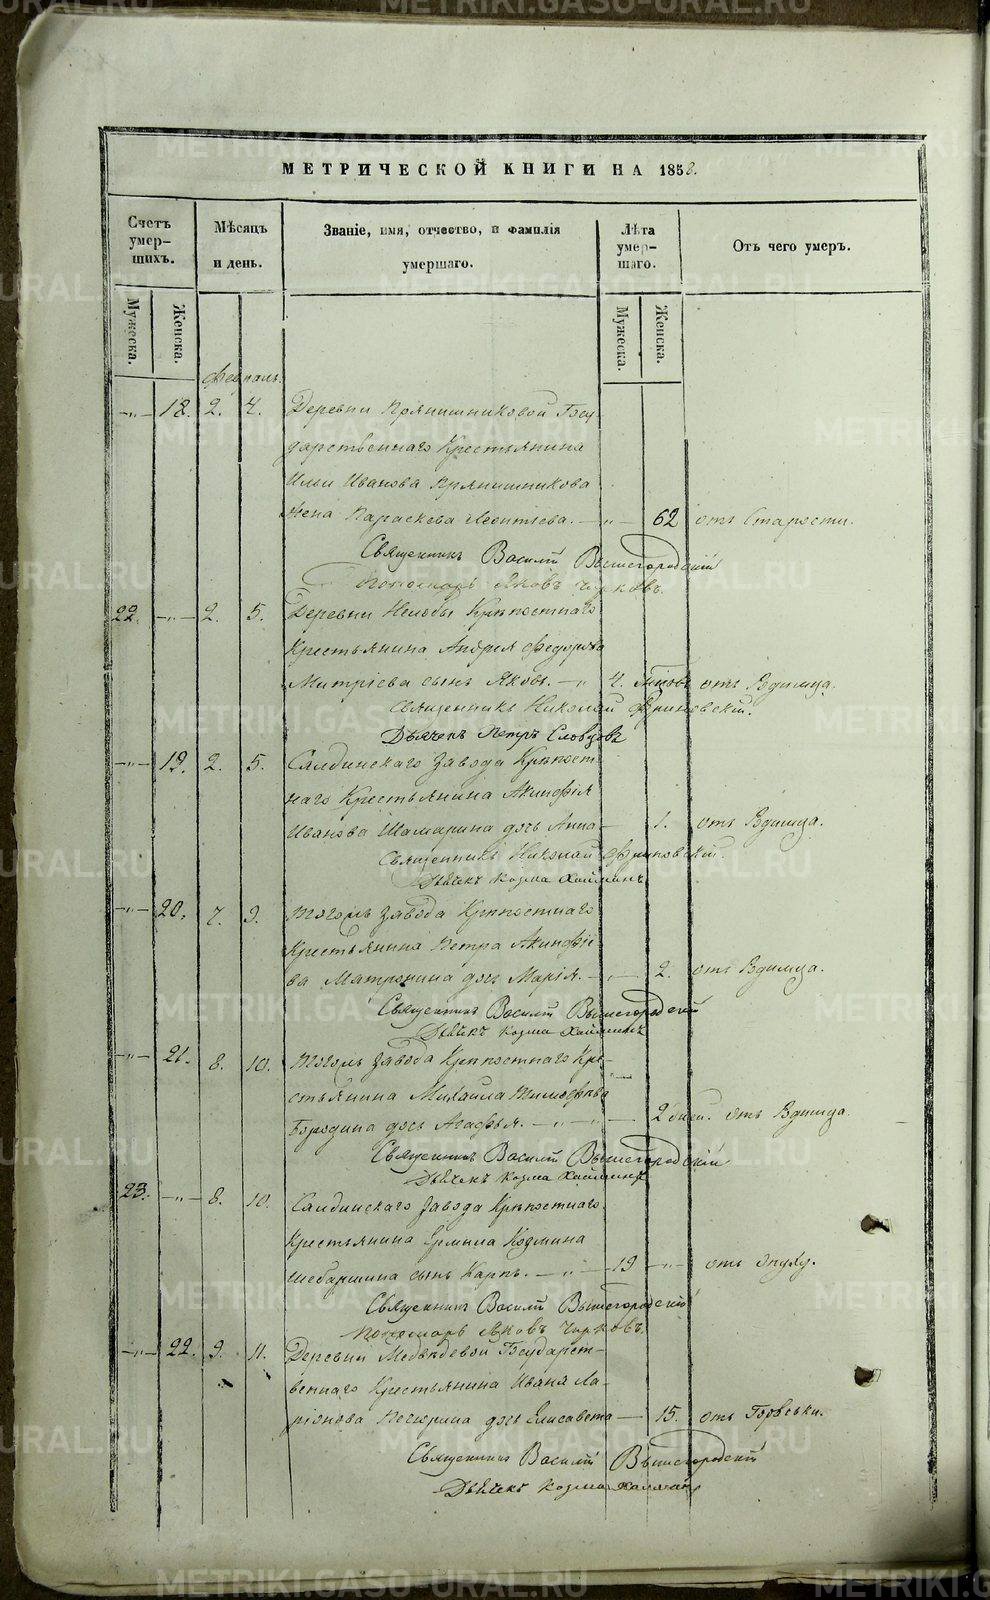 МЕТРИЧЕСКОЙ КНИГИ НА 1858.
Счетъ умер-шихъ.
Мѣсяцъ и день.
Званіе, имя, отчество, и фамилія умершаго.
Лѣта умер-шаго.
Отъ чего умеръ.
Мужеска.
Женска.
Мужеска.
Женска.
Февраль.
-"- 18. 2. 4. Деревни Прянишниковой Госу-
дарственнаго Крестьянина
Ильи Иванова Прянишникова
жена Параскева Леонтіева. -"- 62 отъ Старости.
Священникъ Василій Вышегородскій
Пономарь Яковъ Чирковъ.
22. -"- 2. 5. Деревни Нелобы Крѣпостнаго
Крестьянина Андрея Федорова
Митріева сынъ Яковъ. -"- 4. отъ Родимца.
Священникъ Николай Флоровскій.
Дьячекъ Петръ Словцовъ
-"- 19. 2. 5. Салдинскаго Завода Крѣпост-
наго Крестьянина Акинфія
Иванова Шамарина дочь Анна - 1. отъ Родимца.
Священникъ Николай Флоровскій.
Дьячекъ Козма Хаймин
-"- 20. 7. 9. Тогожъ Завода Крѣпостнаго
Крестьянина Петра Акинфіе-
ва Матронина дочь Марія. -"- 2. отъ Родимца.
Священникъ Василій Вышегородскій
Дьячекъ Козма Хаймин
-"- 21. 8. 10. Тогожъ Завода Крѣпостнаго Кре-
стьянина Михаила Тимофѣева
Бородина дочь Агафья. -"-"- 2 дней. отъ Родимца.
Священникъ Василій Вышегородскій
Дьячекъ Козма Хаймин
23. -"- 8. 10. Салдинскаго Завода Крѣпостнаго
Крестьянина Ермила Козмина
Шебаршина сынъ Карпъ. -"- 19 -"- отъ опуху.
Священникъ Василій Вышегородскій
Пономарь Яковъ Чирковъ.
-"- 22. 9. 11. Деревни Медвѣдевой Государст-
веннаго Крестьянина Ивана Ла-
ріонова дочь Елисавета - 15. отъ Горячки.
Священникъ Василій Вышегородскій
Дьячекъ Козма Хаймин
METRIKI.GASO-URAL.RU